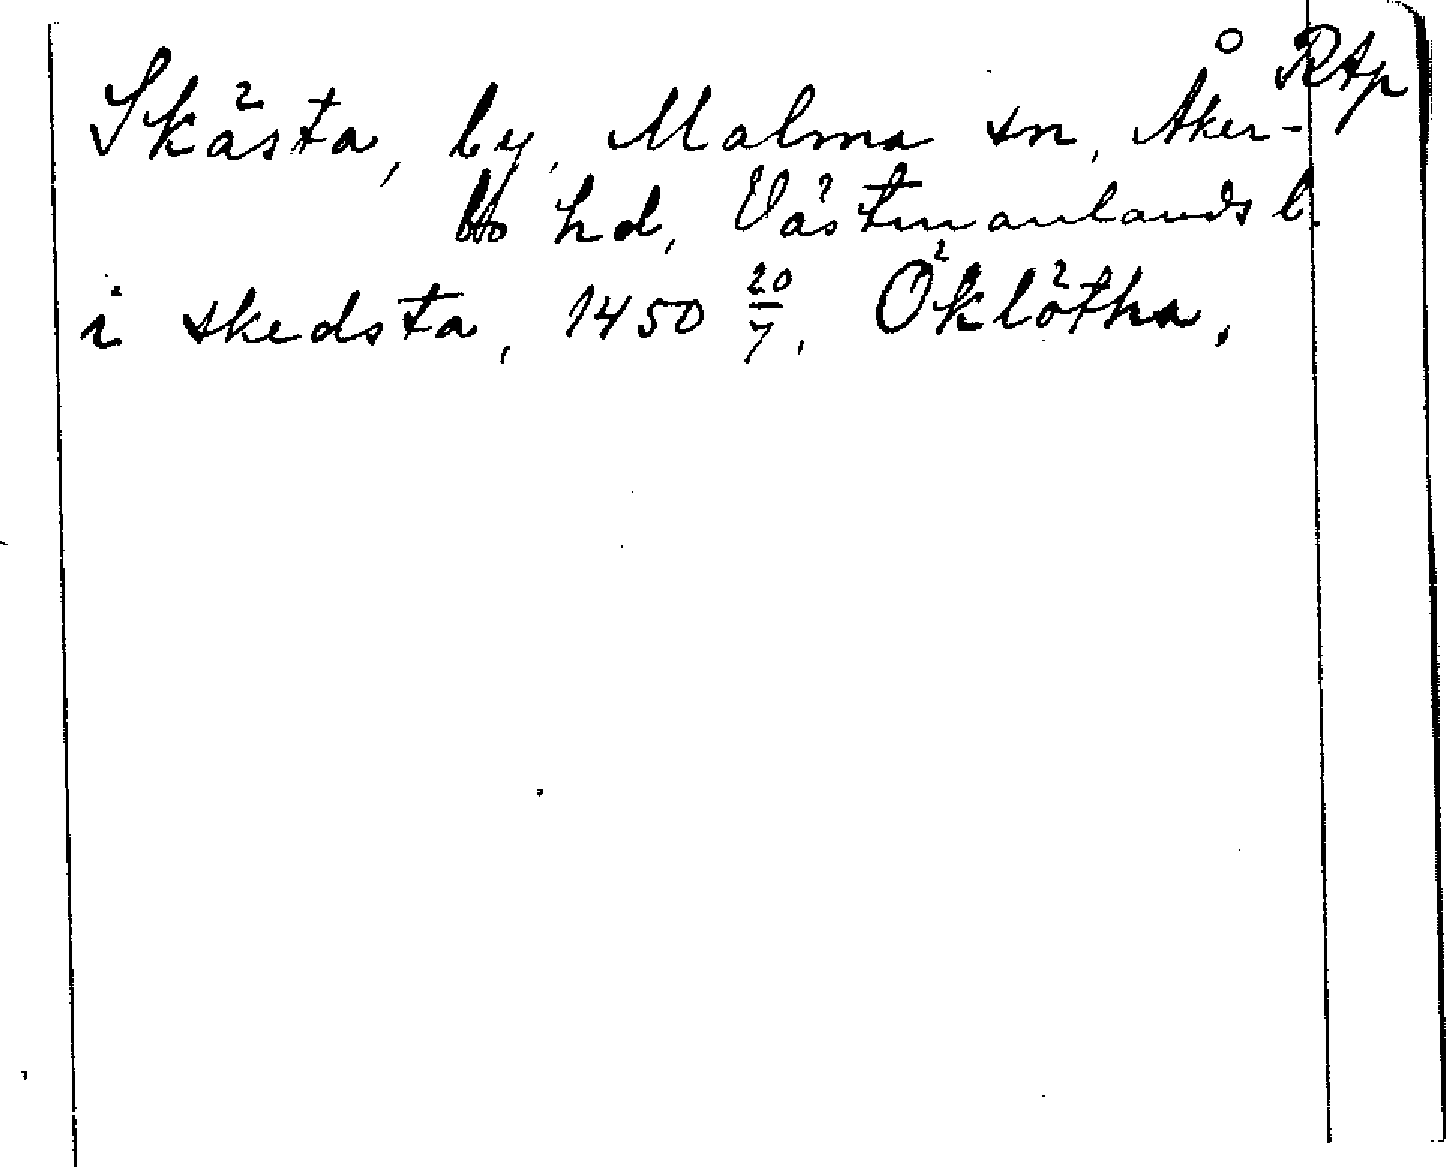 RAp
Skästa, by, Malma sn, Åker-
bo hd, Västmanlands l.
i skedsta, 1450 20/7, Öklötha.